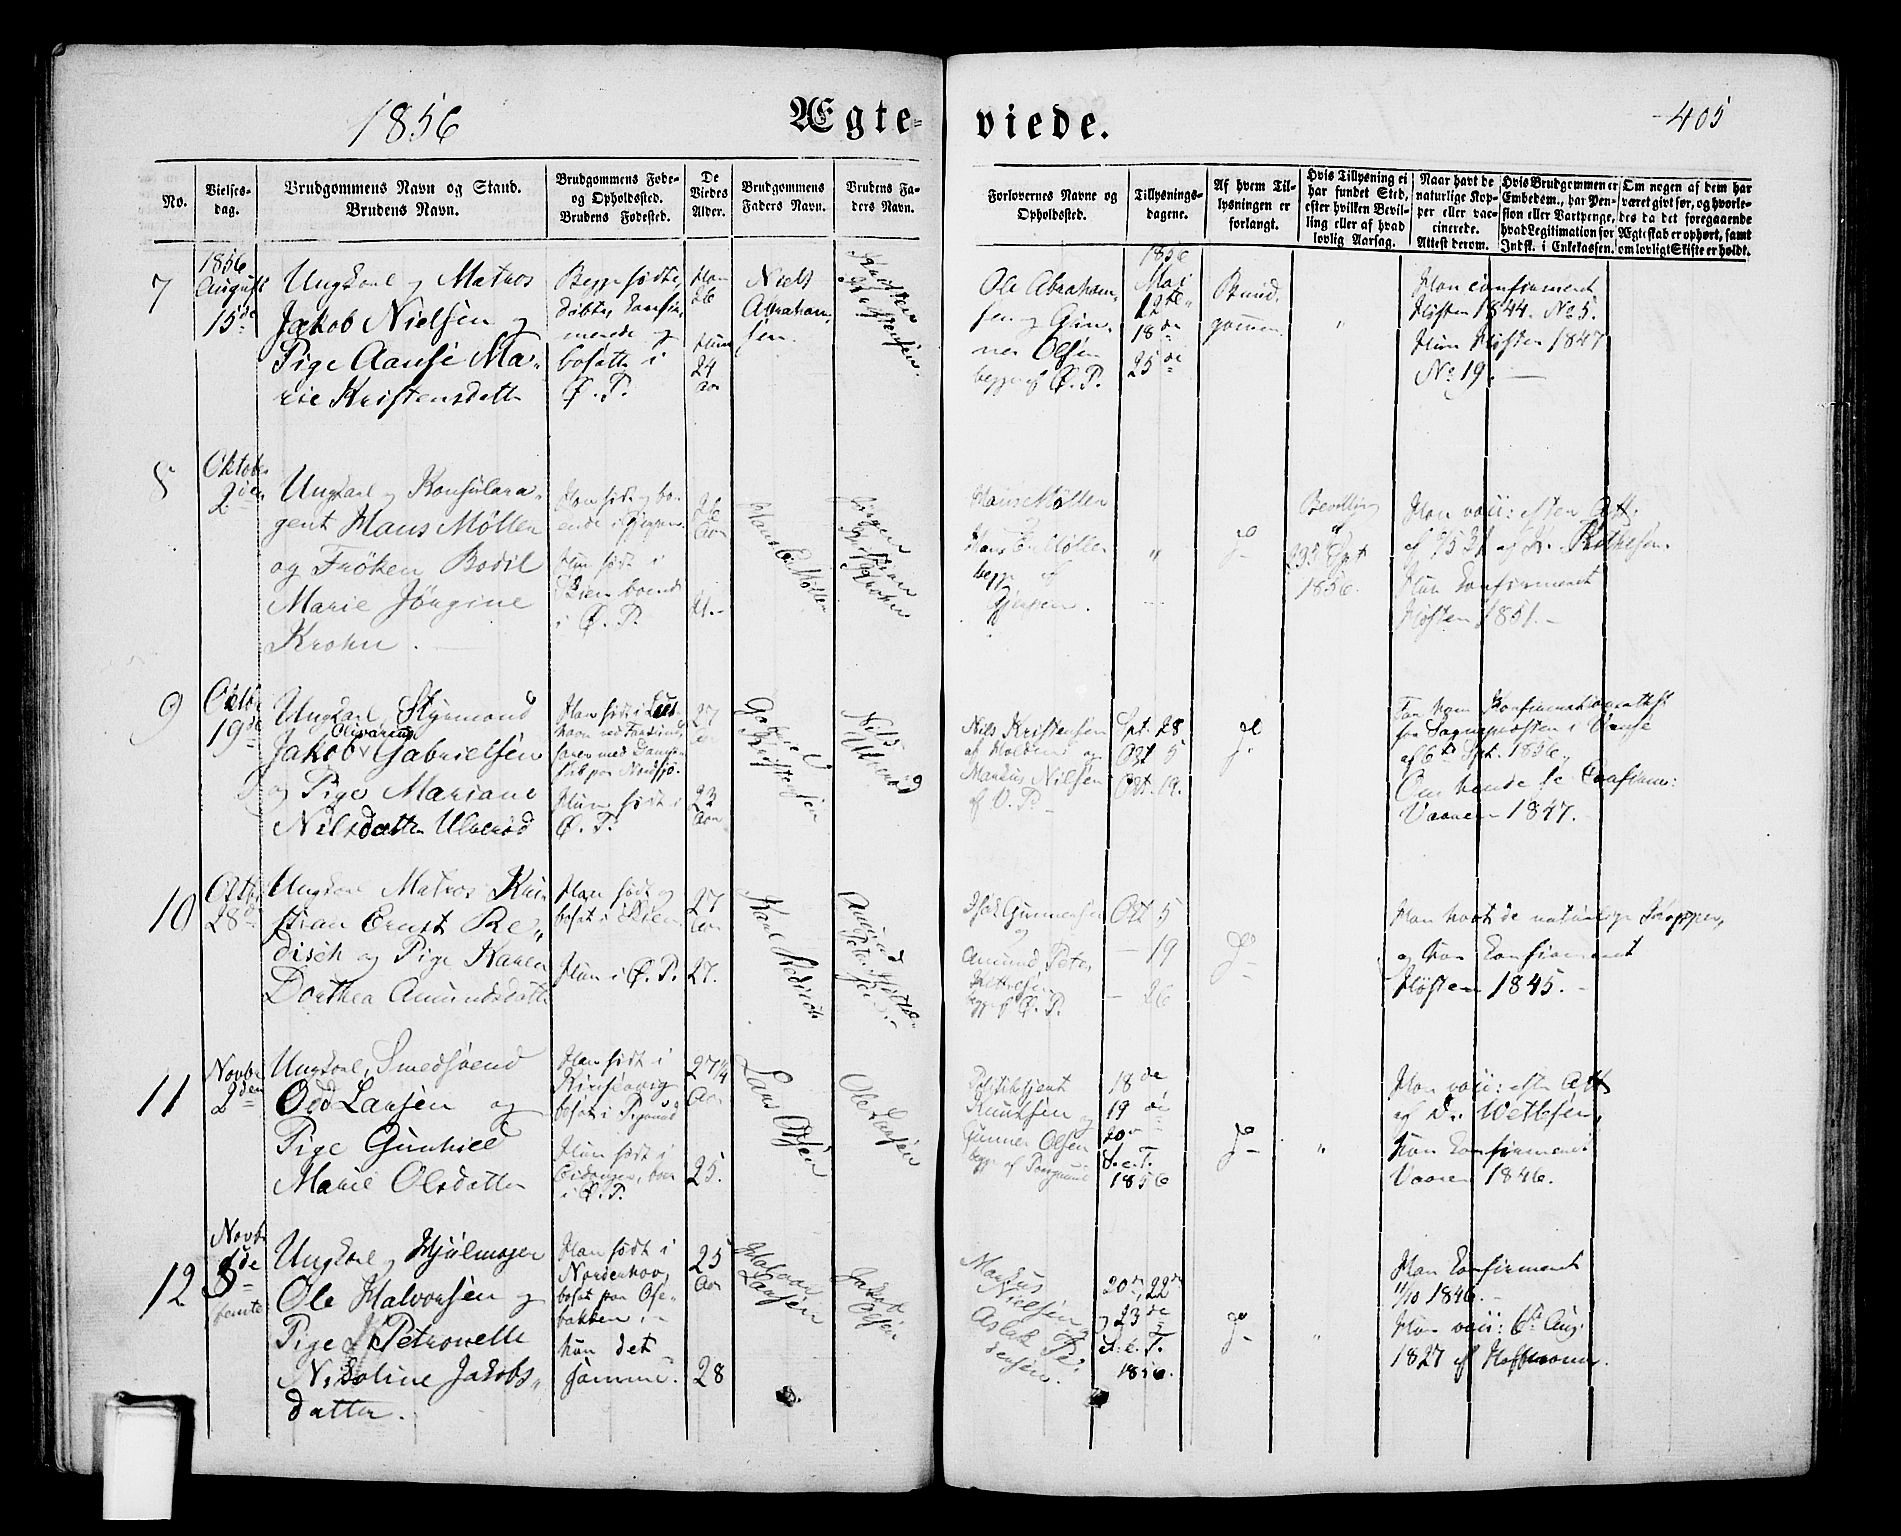 1856
Ægte-
viede.
405
No.
Vielses-
dag.
Brudgommens Navn og Stand.
Brudens Navn.
Brudgommens Føde-
og Opholdssted.
Brudens Fødested.
De
Viedes
Alder.
Brudgommens
Faders Navn.
Brudens Fa-
ders Navn.
Forlovernes Navne og
Opholdssted.
Tillysnings-
dagene.
Af hvem Til-
lysningen er
forlangt.
Hvis Tillysning ei
har fundet Sted,
efter hvilken Bevil-
ling eller af hvad
lovlig Aarsag.
Naar havt de
naturlige Kop-
per eller vac-
cinerede.
Attest derom.
Hvis Brudgommen er
Embedsm., har Pen-
sion eller Vartpenge,
hvad Legitimation for
Indsk. i Enkekassen.
Om nogen af dem har
været gift før, og hvorle-
des da det foregaaende
Ægteskab er ophørt, samt
om lovligt Skifte er holdt.
7
1856
August
15de
Ungkarl og Matros
Jakob Nielsen og
Pige Aanse Ma-
rie Kristensdatter
Begge fødte,
døbte, konfir-
merede og
bosatte i
Ø. P.
Han
26
Hun
24
Aar
Niels
Abraham-
sen.
Ole Abraham-
sen og Gun-
ner Olsen
begge af Ø. P.
1856
Mai
12te
18de
25de
Brud-
gommen
"
Han confirmeret
Høsten 1844. No 5.
Hun Høsten 1847
No 19.
8
Oktober
2den
Ungkarl og Konsulara-
gent Hans Møller
og Frøken Bodil
Marie Jörgine
Krohn.
Han født og bo-
ende i Gjerpen.
Hun født i
Skien boende
i Ø. P.
26
Aar
21.-
Hans E. Møller
Jörgen
Kristian
Krohn
Hans Møller
Hans E. Møller
begge af
Gjerpen.
"
Bevilling
af
Spt
1856.
Han vacc: efter Att.
Hun konfirmeret
Høsten 1851.
9
Octbr
19de
Ungkarl, Styrmand
Olivarius
Jakob Gabrielsen
og Pige Mariane
Nilsdatter Ulverød
Hun født i
Ø. P.
27
Aar
23
Aar
Gabriel
Kristensen
Nils
Ulverød
Nils Kristensen
og
Markus Nilsen
af Ø. P.
Spt. 28
Okt 5
Okt. 19.
For ham Konfirmationsattest
fra Sognepræsten i Vanse
af 6te Spt. 1856,
Om hende se Confirma:
Vaaren 1847.
10
Octbr
28de
Ungkarl Matros Kri-
stian Ernst Re-
disch og Pige Karen
Dorthea Amundsdatter
Han født og
bosat i Skien
Hun i Ø. P.
27
Aar
27.
Karl
Redisch
Amund
Isak Gunnersen
og
Amund Peter
begge af Ø. P.
Okt 5
- 19
- 26
Han havt de naturlige Kopper,
og hun konfirmeret
Høsten 1845.
11
Novbr
2den
Ungkarl, Smedsvend
Odd Larsen og
Pige Gunhild
Marie Olsdatter
Han født i
bosat i
Hun født i
Eidanger, boer
i Ø. P.
27 1/4
Aar
25.
Lars Olsen
Ole Larsen
Politibetjent
Knudsen og
Gunner Olsen
begge af Porsgrund
18de
19de
20de
S. e. T.
1856
"
Han vacc: efter Att
af D. Wetlesen,
hun konfirmeret
Vaaren 1846.
12
Novbr
5de
femte
Ungkarl og Hjulmager
Ole Halvorsen og
Pige Petronelle
Nikoline Jakobs-
datter.
Han født i
Norderhov,
bosat paa Ose-
bakken,
hun det
samme.
25
Aar
28
Halvor
Larsen
Jakob
Olsen
Markus
Nielsen og
Aslak Pe-
dersen.
20de, 22de
og 23de
S. e. T.
1856.
"
Han konfirmeret
1/10 1846.
Hun vacc: 6te Aug.
1827 af Hoffmann.